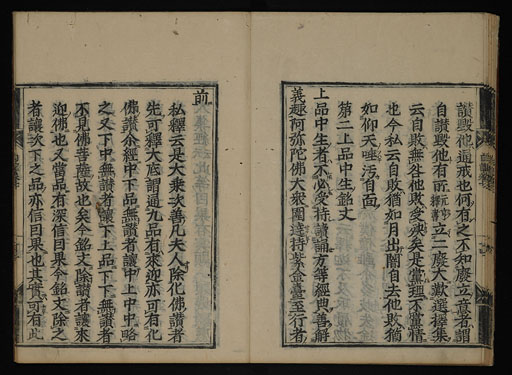 讃毀他通戒也何有之不知麼立意者謂
自讃毀他有所立二麼大歎選擇集
云自敗無咎他敗受殃矣是黨理不黨情
也今私云自敗猶如月出闇自去他敗猶
如仰天唾汚自面
第二上品中生銘文
上品中生者不必受持讀誦方等經典善解
義趣阿弥陀佛大衆圍遶持紫金臺至行者
前
私釋云是大乗次善凡夫人除化佛讃者
先可釋大底謂通九品有來迎亦可有化
佛讃今經中下品無讃者讓中上中中略
之又下中無讃者讓下上品下下無讃者
不見佛菩薩故也矣今銘文除讃者讓來
迎佛也又當品有深信因果今銘文除之
者讓次下之品亦信因果也其實可有此